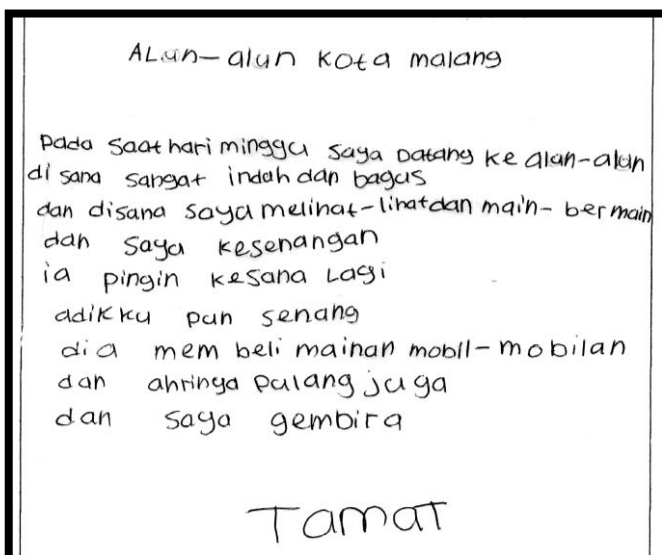 ALun-alun Kota malang
pada saat hari minggu saya Datang ke alun-alun
di sana sangat indah dan bagus
dan disana saya melihat-lihat dan main-bermain
dan saya kesenangan
ia pingin kesana Lagi
adikku pun senang
dia mem beli mainan mobil-mobilan
dan ahrinya pulang juga
dan saya gembira
Tamat